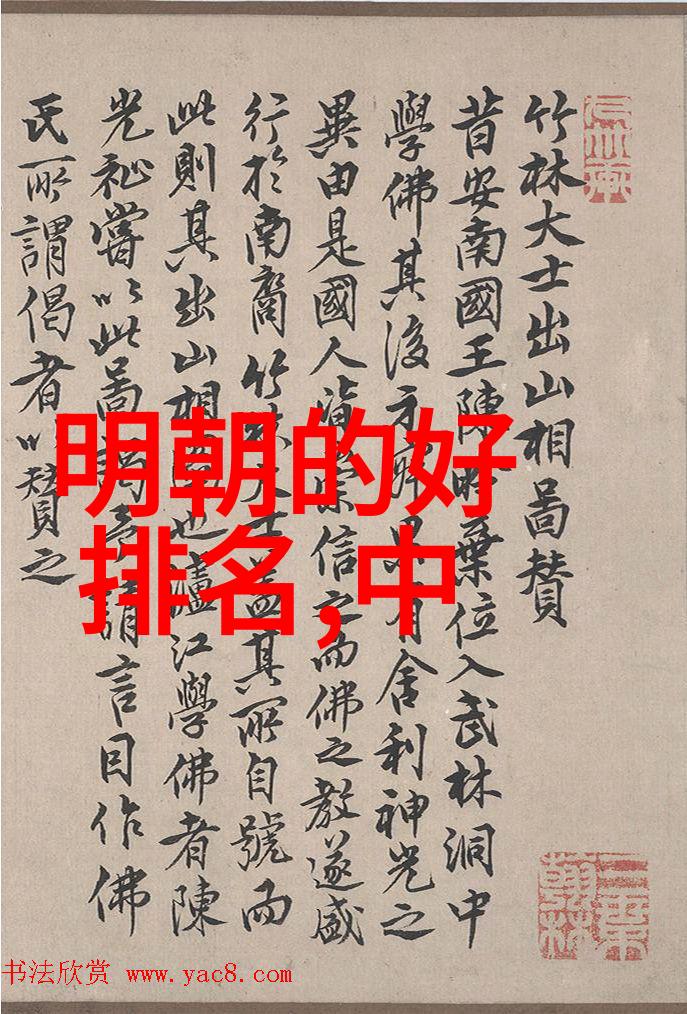 竹林大士出山相啚賛
昔安南國王陳棄位入武林洞中
學佛其後示解果有舍利神光之
異由是國人崇信之而佛之教遂盛
行於南裔竹林大士盖其所自號而
此則其出山相也瀘江學佛者陳
光祉嘗以此啚謁予請言目作佛
氏所謂偈者以賛之
明朝的好
排名,中
书法欣赏 www.yac8.com